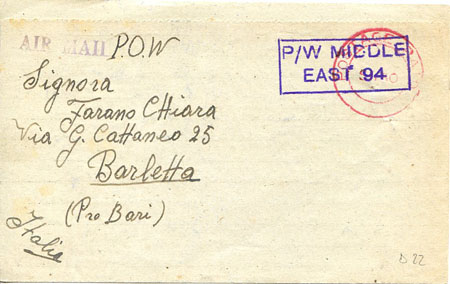 AIR MAIL P.O.W
P/W MIDDLE
EAST 94
Signora
Farano Chiara
Via G. Cattaneo 25
Barletta
(Pro Bari)
Italia
D 22